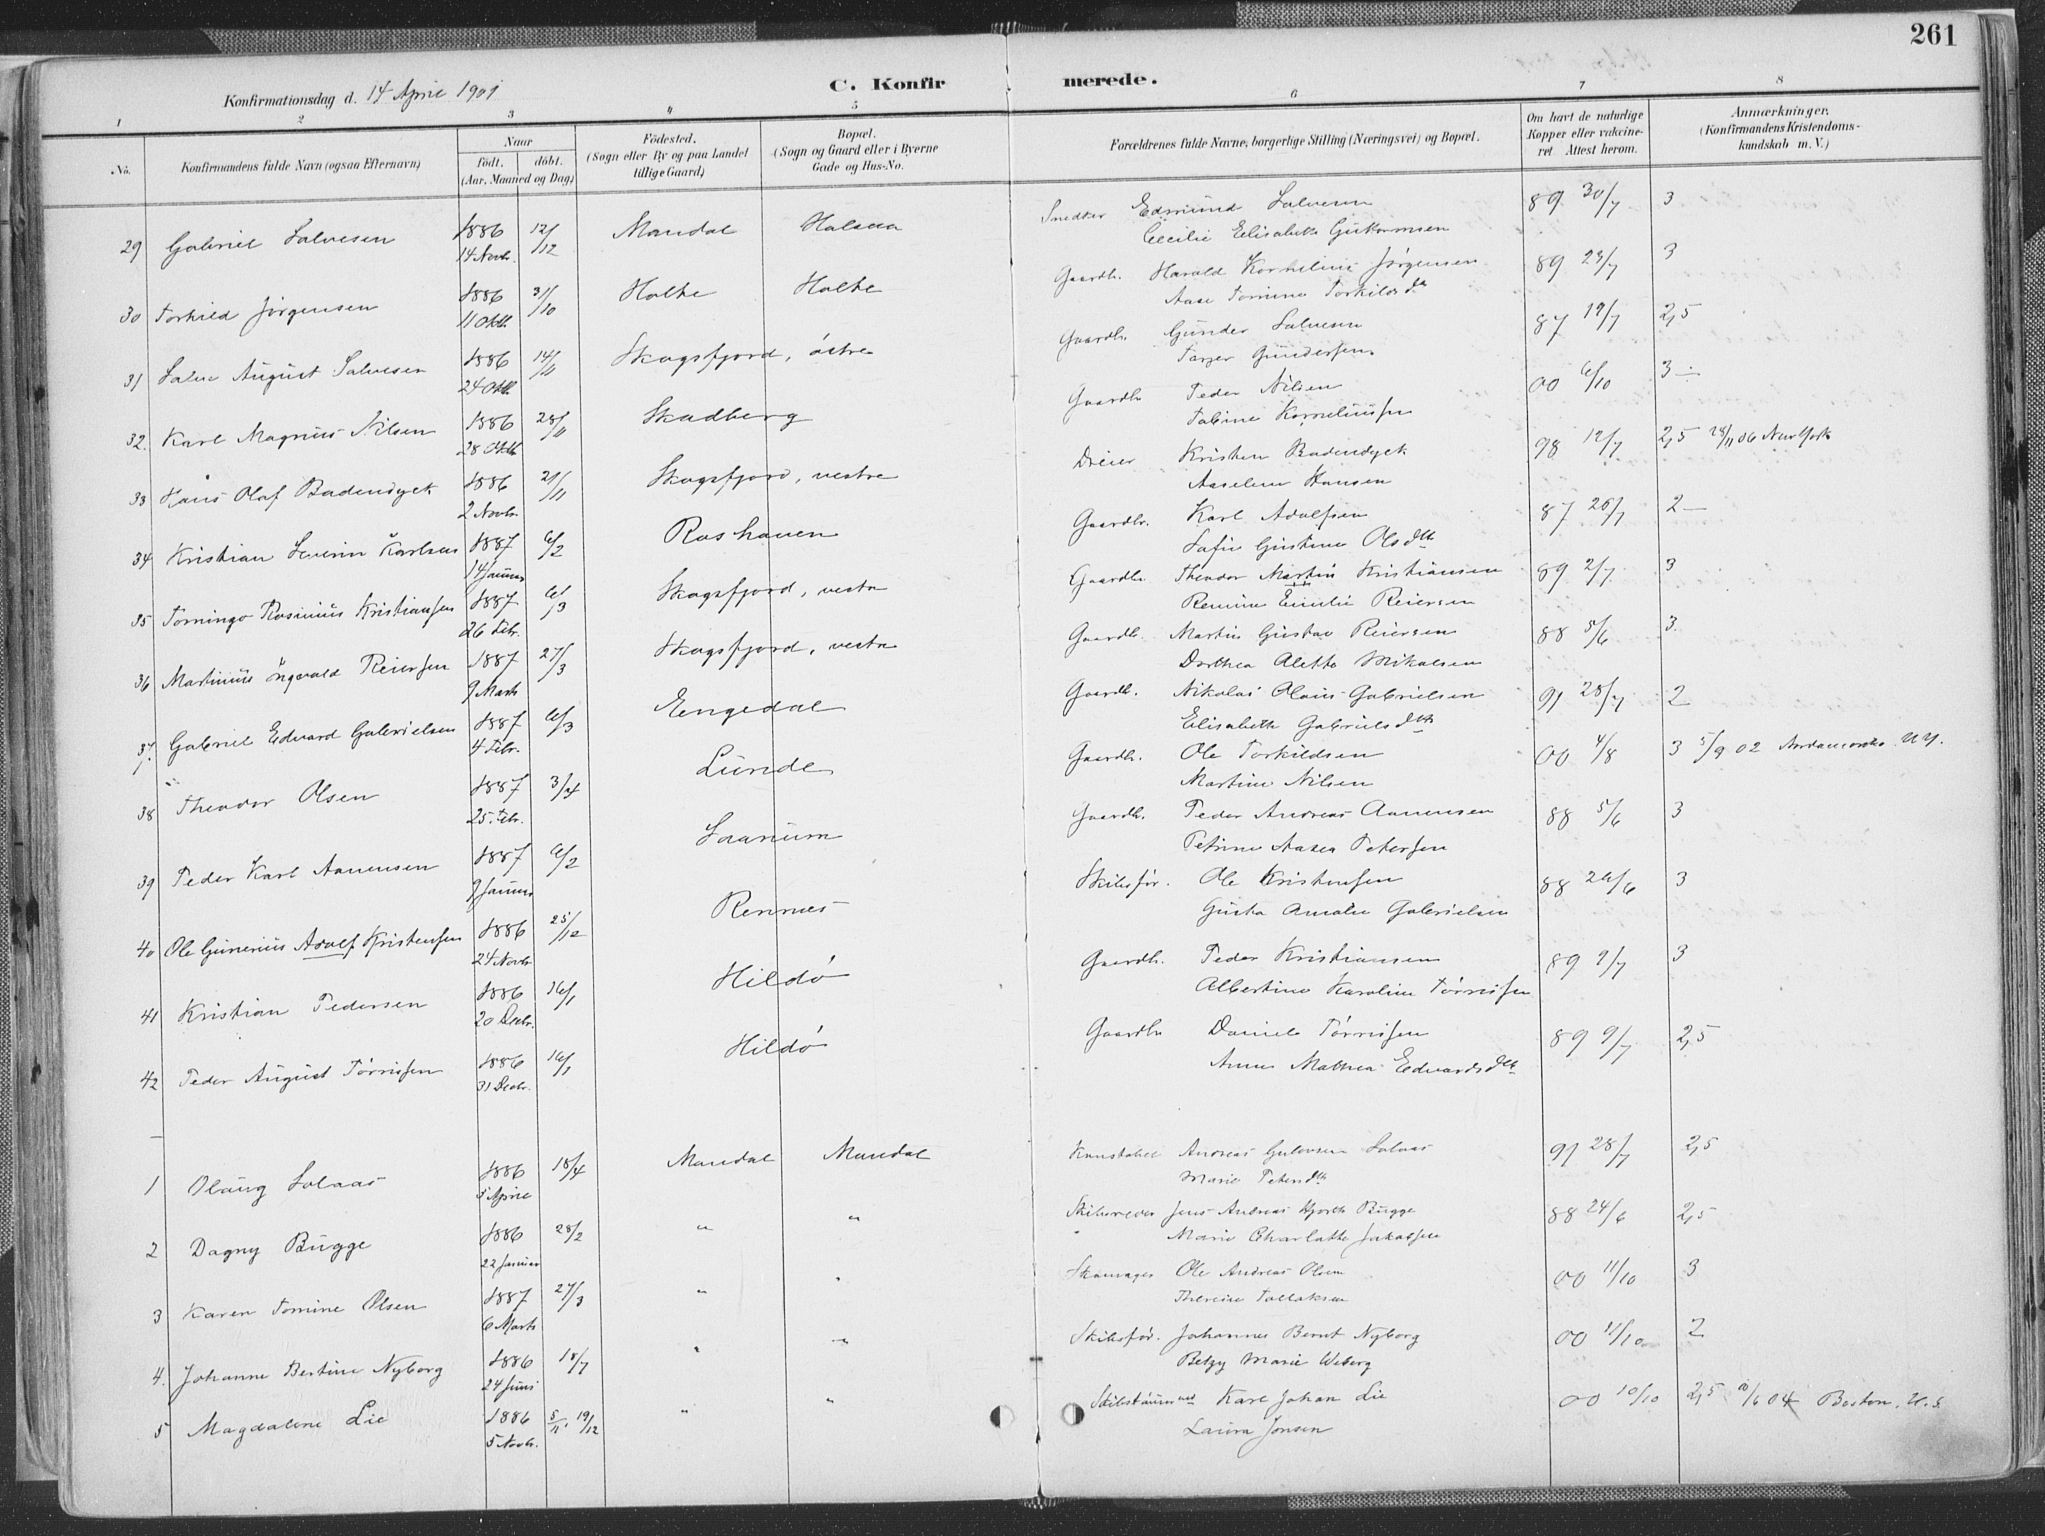 261
Konfirmationsdag d. 14 April 1901
C. Konfirmerede.
1 2 3 4 5 6 7 8
No. Konfirmandens fulde Navn (ogsaa Efternavn) Naar født. døbt. (Aar, Maaned og Dag) Fødested. (Sogn eller By og paa Landet tillige Gaard) Bopæl. (Sogn og Gaard eller i Byerne Gade og Hus-No. Forældrenes fulde Navne, borgerlige Stilling (Næringsvei) og Bopæl. Om havt de naturlige Kopper eller vaccineret. Attest herom. Anmærkninger. (Konfirmandens Kristendomskundskab m. V.)
29 Gabriel Salvesen 1886 12/12 Mandal Halsaa Snedker Edmund Salvesen 89 30/7 3
14 Novb. Cecilie Elisabeth
30 Torkild Jørgensen 1886 31/10 Holthe Holthe Gaardb. Harald Kornelius Jørgensen 89 23/7 3
11 Oktb. Aase Tomine Torkildsdtr
31 Salve August Salvesen 1886 14/11 Skogsfjord, østre Gaardb. Gunder Salvesen 87 19/7 2,5
24 Oktb. Gundersen
32. Karl Magnus Nilsen 1886 28/11 Skadberg Gaardb. Peder Nilsen 00 6/10 3 -
28 Oktb. Tabine Korneliussen
33 Hans Olaf Badendyck 1886 21/11 Skogsfjord, vestre Dreier Kristen Badendyck 98 12/7 2,5 28/11 06 New York
2 Novb. Aaselene Hansen
34 Kristian Severin Karlsen 1887 6/2 Roshaven Gaardb. Karl Adolfsen 87 26/7 2 -
14 Januar Sofie Gustine Olsdtr
35 Tomingo Rasmus Kristiansen 1887 6/3 Skogsfjord, vestre Gaardb. Theodor Martin Kristiansen 89 2/7 3
26 Febr. Remine Emilie Reiersen
36 Martinius Ingvald Reiersen 1887 27/3 Skogsfjord, vestre Gaardb. Martin Gustav Reiersen 88 5/6 3.
9 Marts Dorthea Alette Mikalsen
37. Gabriel Edvard Gabrielsen 1887 6/3 Engedal Gaardb. Nikolai Olaus Gabrielsen 91 28/7 2
4 Febr. Elisabeth Gabrielsdtr
38 Theodor Olsen 1887 3/4 Lunde Gaardb. Ole Torkildsen 00 4/8 3 5/9 02 N.Y.
25. Febr. Martine Nilsen
39 Peder Karl Aanensen 1887 6/2 Saanum Gaardb. Peder Andreas Aanensen 88 5/6 3
9 Januar Petrine Aasea Petersen
40 Ole Gunerius Adolf Kristensen 1886 25/12 Rennes Skibsfør. Ole Kristensen 88 26/6 3
24 Novb. Gusta Amalie Gabrielsen
41 Kristian Pedersen 1886 16/1 Hildø Gaardb. Peder Kristiansen 89 9/7 3
20 Decbr. Albertine Karoline Tørrisen
42 Peder August Tørrisen 1886 16/1 Hildø Gaardb Daniel Tørrisen 89 9/7 2,5
31 Decbr. Anne Mathea Edvardsdtr
1 Olaug Solaas 1886 18/4 Mandal Mandal Konstabel Andreas Gulovsen Solaas 91 28/7 2,5
5 April Marie Petersdtr
2 Dagny Bugge 1886 28/2 " " Skibsreder Jens Andreas Hjorth Bugge 88 24/6 2,5
22 Januar Marie Charlotte Jakobsen
3 Karen Tomine Olsen 1887 27/3 " " Skomager Ole Andreas Olsen 00 11/10 3
6 Marts Therese Tallaksen
4. Johanne Bertine Nyborg 1886 18/7 " " Skibsfør. Johannes Bernt Nyborg 00 11/10 2
24 Juni Betzy Marie Weberg
5 Magdalene Lie 1886 5/11. 19/12 " " Karl Johan Lie 00 10/10 2,5 10/6 04 Boston, U.S.
5 Novb. Laura Jonsen